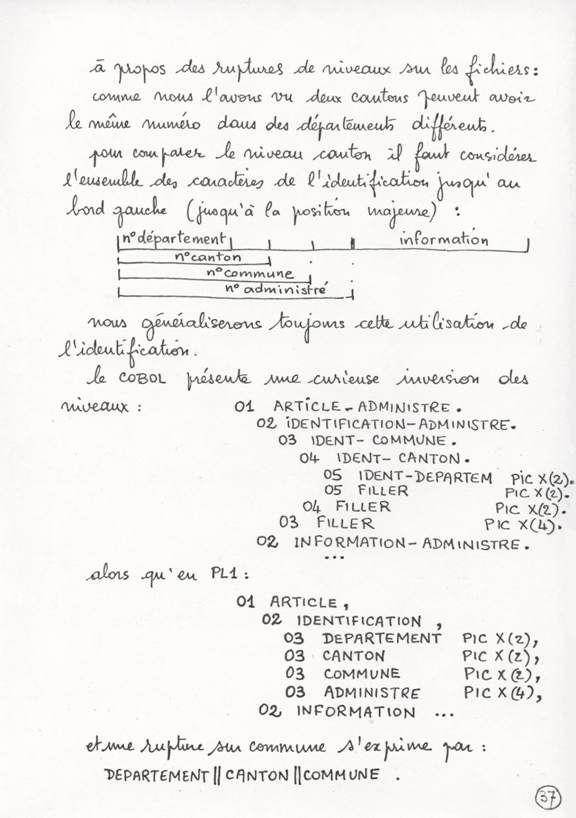 à propos des ruptures de niveaux sur les fichiers :
comme nous l'avons vu deux cantons peuvent avoir
le même numéro dans des départements différents.
pour comparer le niveau canton il faut considérer
l'ensemble des caractères de l'identification jusqu'au
bord gauche (jusqu'à la position majeure) :
n° département information
n° canton
n° commune
n° administré
nous généraliserons toujours cette utilisation de
l'identification.
le COBOL présente une curieuse inversion des
niveaux : 01 ARTICLE-ADMINISTRE.
02 IDENTIFICATION-ADMINISTRE.
03 IDENT-COMMUNE.
04 IDENT-CANTON.
05 IDENT-DEPARTEM PIC X(2).
05 FILLER PIC X(2).
04 FILLER PIC X(2).
03 FILLER PIC X(4).
02 INFORMATION-ADMINISTRE.
...
alors qu'en PL1 :
01 ARTICLE,
02 IDENTIFICATION,
03 DEPARTEMENT PIC X(2),
03 CANTON PIC X(2),
03 COMMUNE PIC X(2),
03 ADMINISTRE PIC X(4),
02 INFORMATION ...
et une rupture sur commune s'exprime par :
DEPARTEMENT||CANTON||COMMUNE .
37